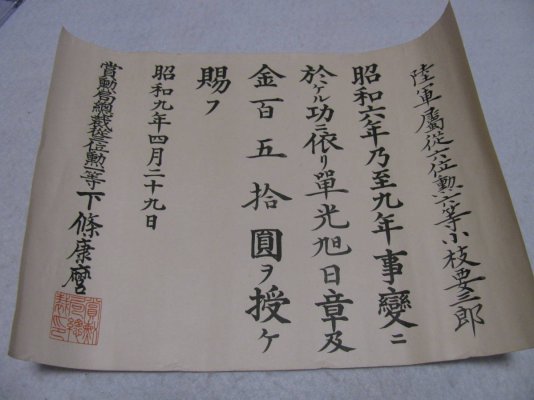 陸軍屬從六位勲六等小枝要三郎
昭和六年乃至九年事變ニ
於ケル功ニ依リ單光旭日章及
金百五拾圓ヲ授ケ
賜フ
昭和九年四月二十九日
賞勲局總裁從三位勲一等下條康麿